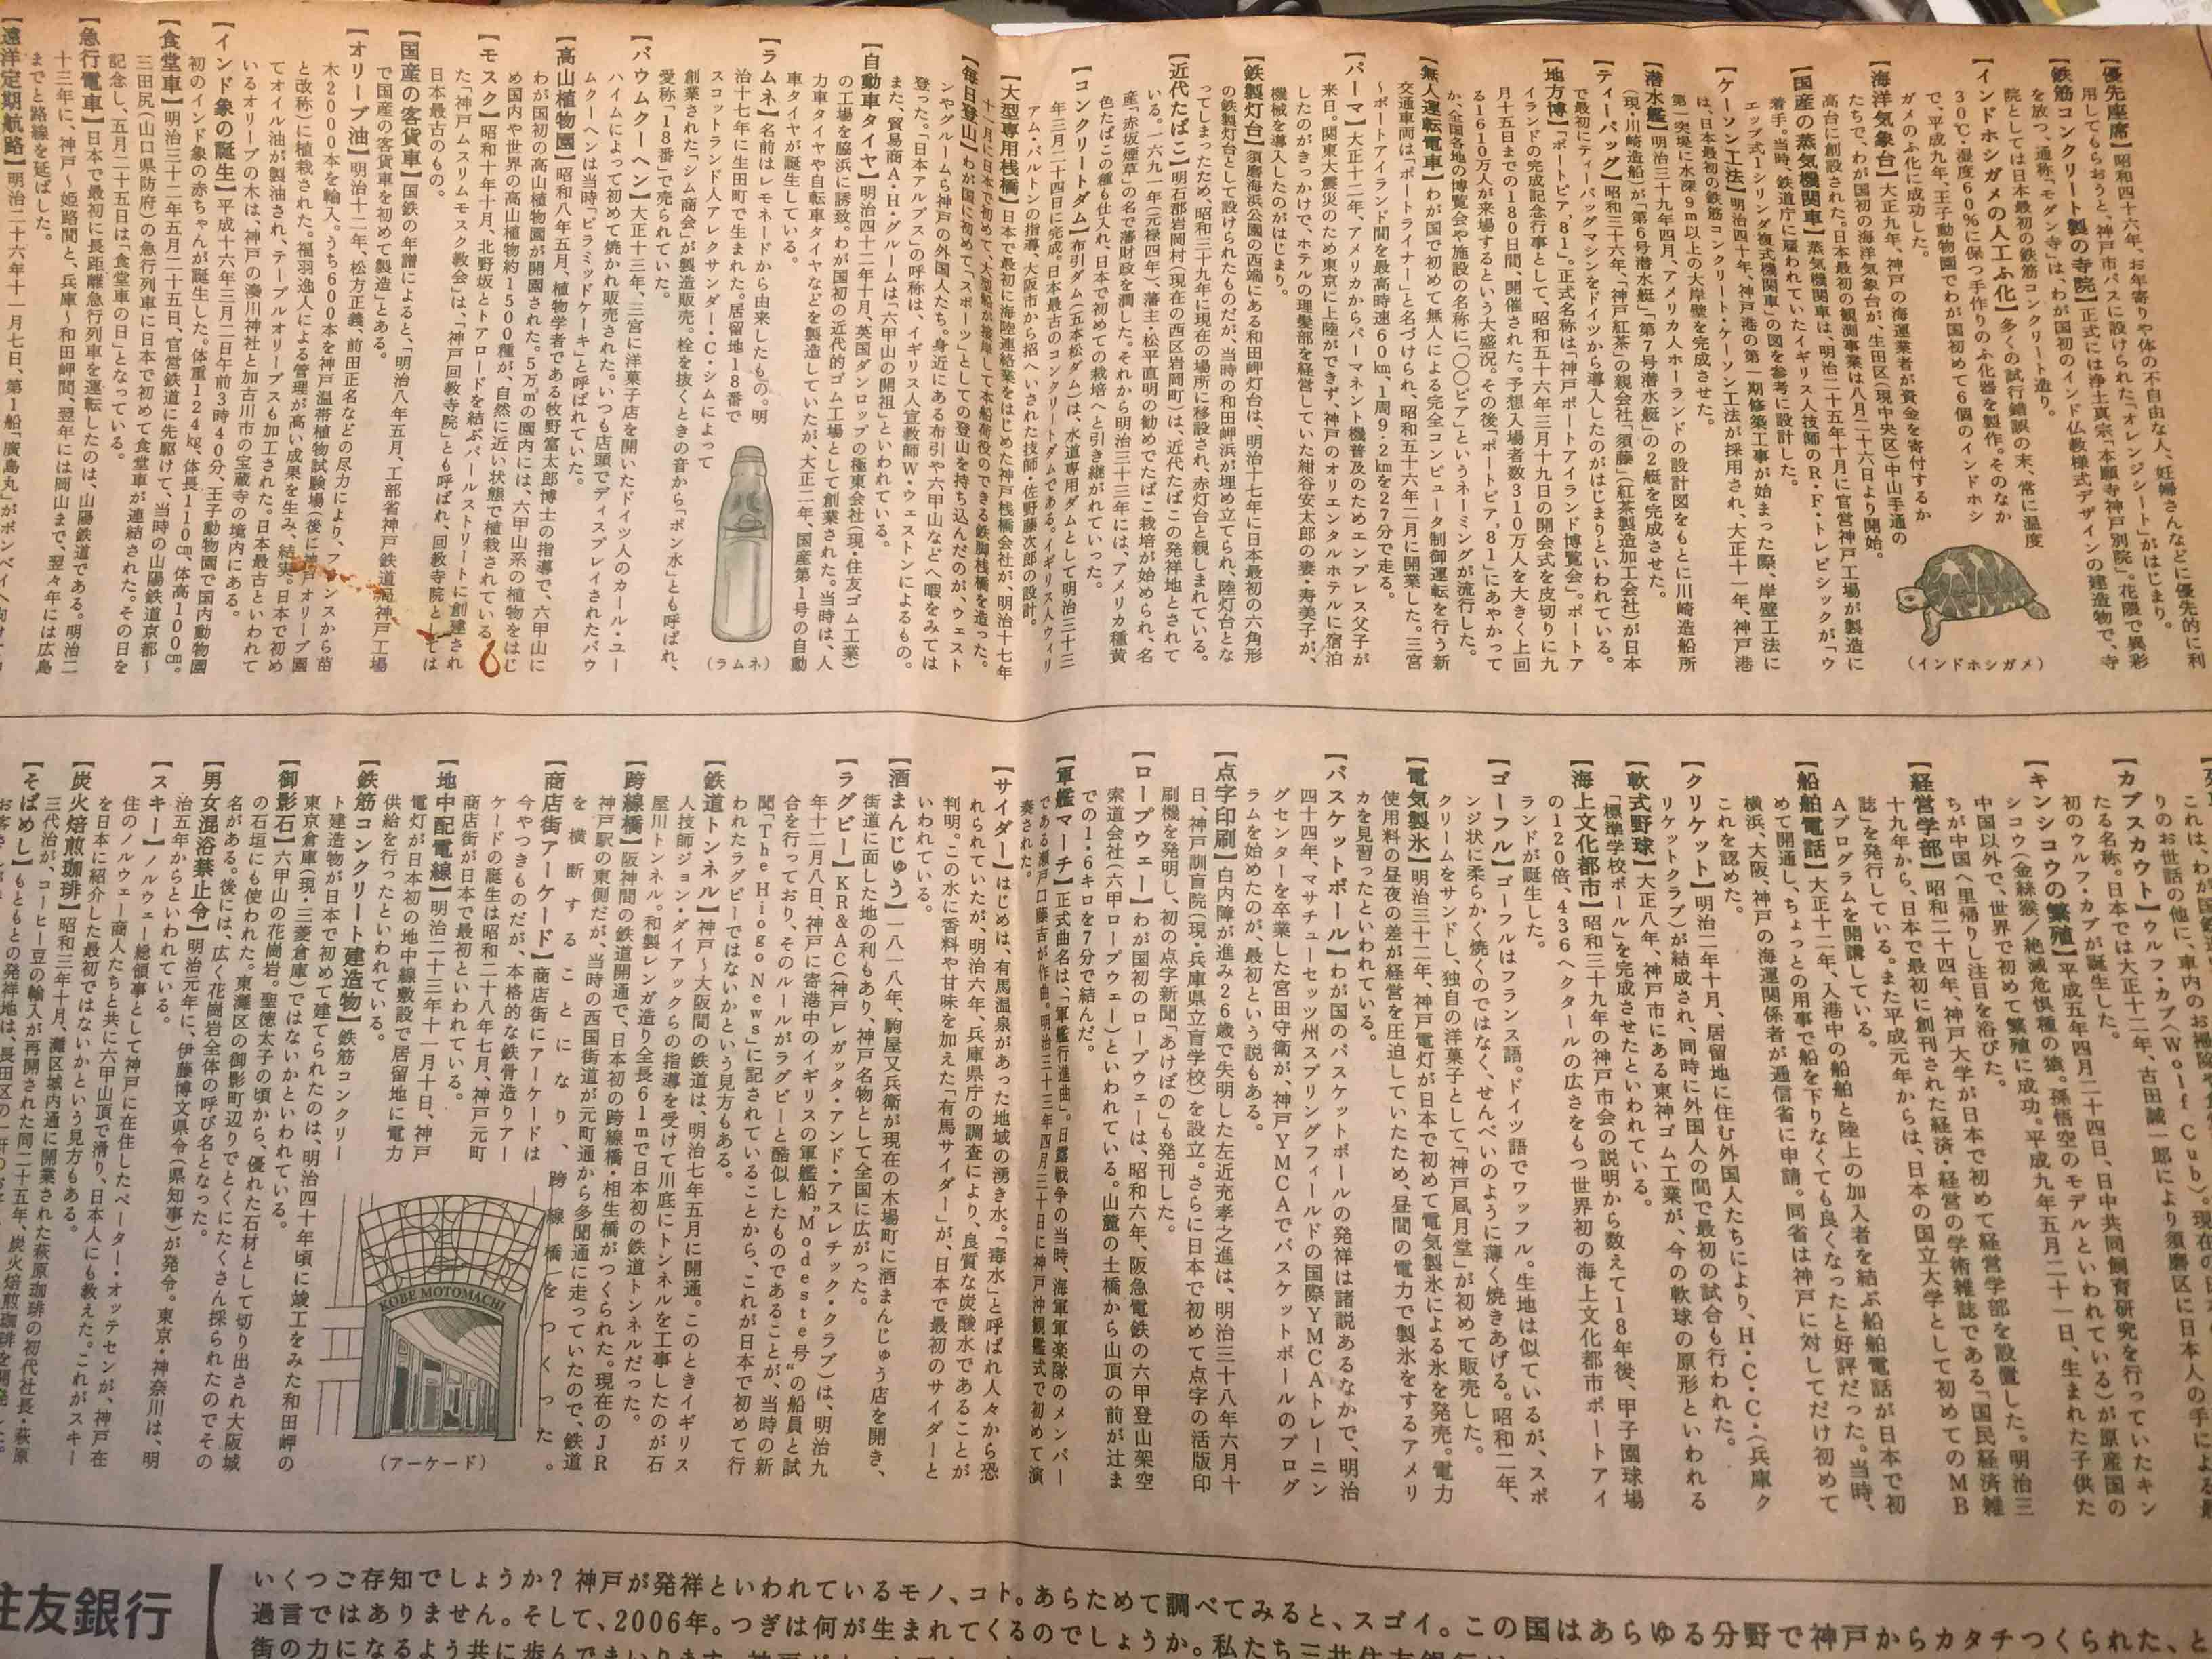 【優先座席】昭和四十六年、お年寄りや体の不自由な人、妊婦さんなどに優先的に利
用してもらおうと、神戸市バスに設けられた「オレンジシート」がはじまり。
【鉄筋コンクリート製の寺院】正式には浄土真宗「本願寺神戸別院」。花隈で異彩
を放つ、通称、「モダン寺」は、わが国初のインド仏教様式デザインの建造物で、寺
院としては日本最初の鉄筋コンクリート造り。
【インドホシガメの人工ふ化】多くの試行錯誤の末、常に温度
30℃・湿度60%に保つ手作りのふ化器を製作。そのなか
で、平成九年、王子動物園でわが国初めて6個のインドホシ
ガメのふ化に成功した。
(インドホシガメ)
【海洋気象台】大正九年、神戸の海運業者が資金を寄付するか
たちで、わが国初の海洋気象台が、生田区(現中央区)中山手通の
高台に創設された。日本最初の観測事業は八月二十六日より開始。
【国産の蒸気機関車】蒸気機関車は、明治二十五年十月に官営神戸工場が製造に
着手。当時、鉄道庁に雇われていたイギリス人技師のR・F・トレビシックが、「ウ
エップ式1シリング複式機関車」の図を参考に設計した。
【ケーソン工法】明治四十年、神戸港の第一期修築工事が始まった際、岸壁工法に
は、日本最初の鉄筋コンクリート・ケーソン工法が採用され、大正十一年、神戸港
第一突堤に水深9m以上の大岸壁を完成させた。
【潜水艦】明治三十九年四月、アメリカ人ホーランドの設計図をもとに川崎造船所
(現・川崎造船)が「第6号潜水艇」「第7号潜水艇」の2艇を完成させた。
【ティーバッグ】昭和三十六年、「神戸紅茶」の親会社「須藤」(紅茶製造加工会社)が日本
で最初にティーバッグマシンをドイツから導入したのがはじまりといわれている。
【地方博】「ポートピア'81」。正式名称は「神戸ポートアイランド博覧会」。ポートア
イランドの完成記念行事として、昭和五十六年三月十九日の開会式を皮切りに九
月十五日までの180日間、開催された。予想入場者数310万人を大きく上回
る1610万人が来場するという大盛況。その後「ポートピア'81」にあやかって
か、全国各地の博覧会や施設の名称に「〇〇〇ピア」というネーミングが流行した。
【無人運転電車】わが国で初めて無人による完全コンピュータ制御運転を行う新
交通車両は「ポートライナー」と名づけられ、昭和五十六年二月に開業した。三宮
～ポートアイランド間を最高時速60㎞、1周9・2㎞を27分で走る。
【パーマ】大正十二年、アメリカからパーマネント機普及のためエンプレス父子が
来日。関東大震災のため東京に上陸ができず、神戸のオリエンタルホテルに宿泊
したのがきっかけで、ホテルの理髪部を経営していた紺谷安太郎の妻・寿美子が、
機械を導入したのがはじまり。
【鉄製灯台】須磨海浜公園の西端にある和田岬灯台は、明治十七年に日本最初の六角形
の鉄製灯台として設けられたものだが、当時の和田岬浜が埋め立てられ、陸灯台とな
ってしまったため、昭和三十九年に現在の場所に移設され、赤灯台と親しまれている。
【近代たばこ】明石郡岩岡村(現在の西区岩岡町)は、近代たばこの発祥地とされて
いる。一六九一年(元禄四年)、藩主・松平直明の勧めでたばこ栽培が始められ、名
産、「赤坂煙草」の名で藩財政を潤した。それから明治三十三年には、アメリカ種黄
色たばこの種も仕入れ、日本で初めての栽培へと引き継がれていった。
【コンクリートダム】布引ダム(五本松ダム)は、水道専用ダムとして明治三十三
年三月二十四日に完成。日本最古のコンクリートダムである。イギリス人ウィリ
アム・バルトンの指導、大阪市から招へいされた技師・佐野藤次郎の設計。
【大型専用桟橋】日本で最初に海陸連絡業をはじめた神戸桟橋会社が、明治十七年
十一月に日本で初めて、大型船が接岸して本船荷役のできる鉄脚桟橋を造った。
【毎日登山】わが国に初めて「スポーツ」としての登山を持ち込んだのが、ウェスト
ンやグルームら神戸の外国人たち。身近にある布引や六甲山などへ暇をみては
登った。「日本アルプス」の呼称は、イギリス人宣教師W・ウェストンによるもの。
また、貿易商A・H・グルームは「六甲山の開祖」といわれている。
【自動車タイヤ】明治四十二年十月、英国ダンロップの極東会社(現・住友ゴム工業)
の工場を脇浜に誘致。わが国初の近代的ゴム工場として創業された。当時は、人
力車タイヤや自転車タイヤなどを製造していたが、大正二年、国産第1号の自動
車タイヤが誕生している。
【ラムネ】名前はレモネードから由来したもの。明
治十七年に生田町で生まれた。居留地18番で
スコットランド人アレクサンダー・C・シムによって
創業された「シム商会」が製造販売。栓を抜くときの音から「ポン水」とも呼ばれ、
愛称、「18番」で売られていた。
(ラムネ)
【バウムクーヘン】大正十三年、三宮に洋菓子店を開いたドイツ人のカール・ユー
ハイムによって初めて焼かれ販売された。いつも店頭でディスプレイされたバウ
ムクーヘンは当時「ピラミッドケーキ」と呼ばれていた。
【高山植物園】昭和八年五月、植物学者である牧野富太郎博士の指導で、六甲山に
わが国初の高山植物園が開園された。5万㎡の園内には、六甲山系の植物をはじ
め国内や世界の高山植物約1500種が、自然に近い状態で植栽されている。
【モスク】昭和十年十月、北野坂とトアロードを結ぶパールストリートに創建され
た「神戸ムスリムモスク教会」は、「神戸回教寺院」とも呼ばれ、回教寺院としては
日本最古のもの。
【国産の客貨車】国鉄の年譜によると、「明治八年五月、工部省神戸鉄道局神戸工場
で国産の客貨車を初めて製造」とある。
【オリーブ油】明治十二年、松方正義、前田正名などの尽力により、フランスから苗
木2000本を輸入。うち600本を神戸温帯植物試験場(後に神戸オリーブ園
と改称)に植栽された。福羽逸人による管理が高い成果を生み、結実。日本で初め
てオイル油が製油され、テーブルオリーブスも加工された。日本最古といわれて
いるオリーブの木は、神戸の湊川神社と加古川市の宝蔵寺の境内にある。
【インド象の誕生】平成十六年三月二日午前3時40分、王子動物園で国内動物園
初のインド象の赤ちゃんが誕生した。体重124㎏、体長110㎝、体高100㎝。
【食堂車】明治三十二年五月二十五日、官営鉄道に先駆けて、当時の山陽鉄道京都～
三田尻(山口県防府)の急行列車に日本で初めて食堂車が連結された。その日を
記念し、五月二十五日は「食堂車の日」となっている。
【急行電車】日本で最初に長距離急行列車を運転したのは、山陽鉄道である。明治二
十三年に、神戸～姫路間と、兵庫～和田岬間、翌年には岡山まで、翌々年には広島
までと路線を延ばした。
【遠洋定期航路】明治二十六年十一月七日、第1船「廣島丸」がボンベイへ向けて
りのお世話の他に、車内のお掃除や
【カブスカウト】ウルフ・カブ(Wolf Cub)現在の
たる名称。日本では大正十二年、古田誠一郎により須磨区に日本人の手による最
初のウルフ・カブが誕生した。
【キンシコウの繁殖】平成五年四月二十四日、日中共同飼育研究を行っていたキン
シコウ(金絲猴／絶滅危惧種の猿。孫悟空のモデルといわれている)が原産国の
中国以外で、世界で初めて繁殖に成功。平成九年五月二十一日、生まれた子供た
ちが中国へ里帰りし注目を浴びた。
【経営学部】昭和二十四年、神戸大学が日本で初めて経営学部を設置した。明治三
十九年から、日本で最初に創刊された経済・経営の学術雑誌である「国民経済雑
誌」を発行している。また平成元年からは、日本の国立大学として初めてのMB
Aプログラムを開講している。
【船舶電話】大正十二年、入港中の船舶と陸上の加入者を結ぶ船舶電話が日本で初
めて開通し、ちょっとの用事で船を下りなくても良くなったと好評だった。当時、
横浜、大阪、神戸の海運関係者が逓信省に申請。同省は神戸に対してだけ初めて
これを認めた。
【クリケット】明治二年十月、居留地に住む外国人たちにより、H・C・C・(兵庫ク
リケットクラブ)が結成され、同時に外国人の間で最初の試合も行われた。
【軟式野球】大正八年、神戸市にある東神ゴム工業が、今の軟球の原形といわれる
「標準学校ボール」を完成させたといわれている。
【海上文化都市】昭和三十九年の神戸市会の説明から数えて18年後、甲子園球場
の120倍、436ヘクタールの広さをもつ世界初の海上文化都市ポートアイ
ランドが誕生した。
【ゴーフル】ゴーフルはフランス語。ドイツ語でワッフル。生地は似ているが、スポ
ンジ状に柔らかく焼くのではなく、せんべいのように薄く焼きあげる。昭和二年、
クリームをサンドし、独自の洋菓子として「神戸凬月堂」が初めて販売した。
【電気製氷】明治三十二年、神戸電灯が日本で初めて電気製氷による氷を発売。電力
使用料の昼夜の差が経営を圧迫していたため、昼間の電力で製氷をするアメリ
カを見習ったといわれている。
【バスケットボール】わが国のバスケットボールの発祥は諸説あるなかで、明治
四十四年、マサチューセッツ州スプリングフィールドの国際YMCAトレーニン
グセンターを卒業した宮田守衛が、神戸YMCAでバスケットボールのプログ
ラムを始めたのが、最初という説もある。
【点字印刷】白内障が進み26歳で失明した左近允孝之進は、明治三十八年六月十
日、神戸訓盲院(現・兵庫県立盲学校)を設立。さらに日本で初めて点字の活版印
刷機を発明し、初の点字新聞「あけぼの」も発刊した。
【ロープウェー】わが国初のロープウェーは、昭和六年、阪急電鉄の六甲登山架空
索道会社(六甲ロープウェー)といわれている。山麓の土橋から山頂の前が辻ま
での1・6キロを7分で結んだ。
【軍艦マーチ】正式曲名は、「軍艦行進曲」。日露戦争の当時、海軍軍楽隊のメンバー
である瀬戸口藤吉が作曲。明治三十三年四月三十日に神戸沖観艦式で初めて演
奏された。
【サイダー】はじめは、有馬温泉があった地域の湧き水。「毒水」と呼ばれ人々から恐
れられていたが、明治六年、兵庫県庁の調査により、良質な炭酸水であることが
判明。この水に香料や甘味を加えた「有馬サイダー」が、日本で最初のサイダーと
いわれている。
【酒まんじゅう】一八一八年、駒屋又兵衛が現在の木場町に酒まんじゅう店を開き、
街道に面した地の利もあり、神戸名物として全国に広がった。
【ラグビー】KR&AC(神戸レガッタ・アンド・アスレチック・クラブ)は、明治九
年十二月八日、神戸に寄港中のイギリスの軍艦船"Modeste号"の船員と試
合を行っており、そのルールがラグビーと酷似したものであることが、当時の新
聞「The Hiogo News」に記されていることから、これが日本で初めて行
われたラグビーではないかという見方もある。
【鉄道トンネル】神戸～大阪間の鉄道は、明治七年五月に開通。このときイギリス
人技師ジョン・ダイアックらの指導を受けて川底にトンネルを工事したのが石
屋川トンネル。和製レンガ造り全長61mで日本初の鉄道トンネルだった。
【跨線橋】阪神間の鉄道開通で、日本初の跨線橋・相生橋がつくられた。現在のJR
神戸駅の東側だが、当時の西国街道が元町通から多聞通に走っていたので、鉄道
を横断することになり、跨線橋をつくった。
【商店街アーケード】商店街にアーケードは
今やつきものだが、本格的な鉄骨造りアー
ケードの誕生は昭和二十八年七月、神戸元町
商店街が日本で最初といわれている。
【地中配電線】明治二十三年十一月十日、神戸
電灯が日本初の地中線敷設で居留地に電力
供給を行ったといわれている。
KOBE MOTOMACHI
(アーケード)
【鉄筋コンクリート建造物】鉄筋コンクリー
ト建造物が日本で初めて建てられたのは、明治四十年頃に竣工をみた和田岬の
東京倉庫(現・三菱倉庫)ではないかといわれている。
【御影石】六甲山の花崗岩。聖徳太子の頃から、優れた石材として切り出され大阪城
の石垣にも使われた。東灘区の御影町辺りでとくにたくさん採られたのでその
名がある。後には、広く花崗岩全体の呼び名となった。
【男女混浴禁止令】明治元年に、伊藤博文県令(県知事)が発令。東京・神奈川は、明
治五年からといわれている。
【スキー】ノルウェー総領事として神戸に在住したペーター・オッテセンが、神戸在
住のノルウェー商人たちと共に六甲山頂で滑り、日本人にも教えた。これがスキー
を日本に紹介した最初ではないかという見方もある。
【炭火焙煎珈琲】昭和三年十月、灘区城内通に開業された萩原珈琲の初代社長・萩原
三代治が、コーヒー豆の輸入が再開された同二十五年、炭火焙煎珈琲を開発した。
【そばめし】もともとの発祥地は、長田区の一軒の
住友銀行
いくつご存知でしょうか？神戸が発祥といわれているモノ、コト。あらためて調べてみると、スゴイ。この国はあらゆる分野で神戸からカタチつくられた、と
過言ではありません。そして、2006年。つぎは何が生まれてくるのでしょうか。私たち三井住友銀行
街の力になるよう共に歩んでまいります。